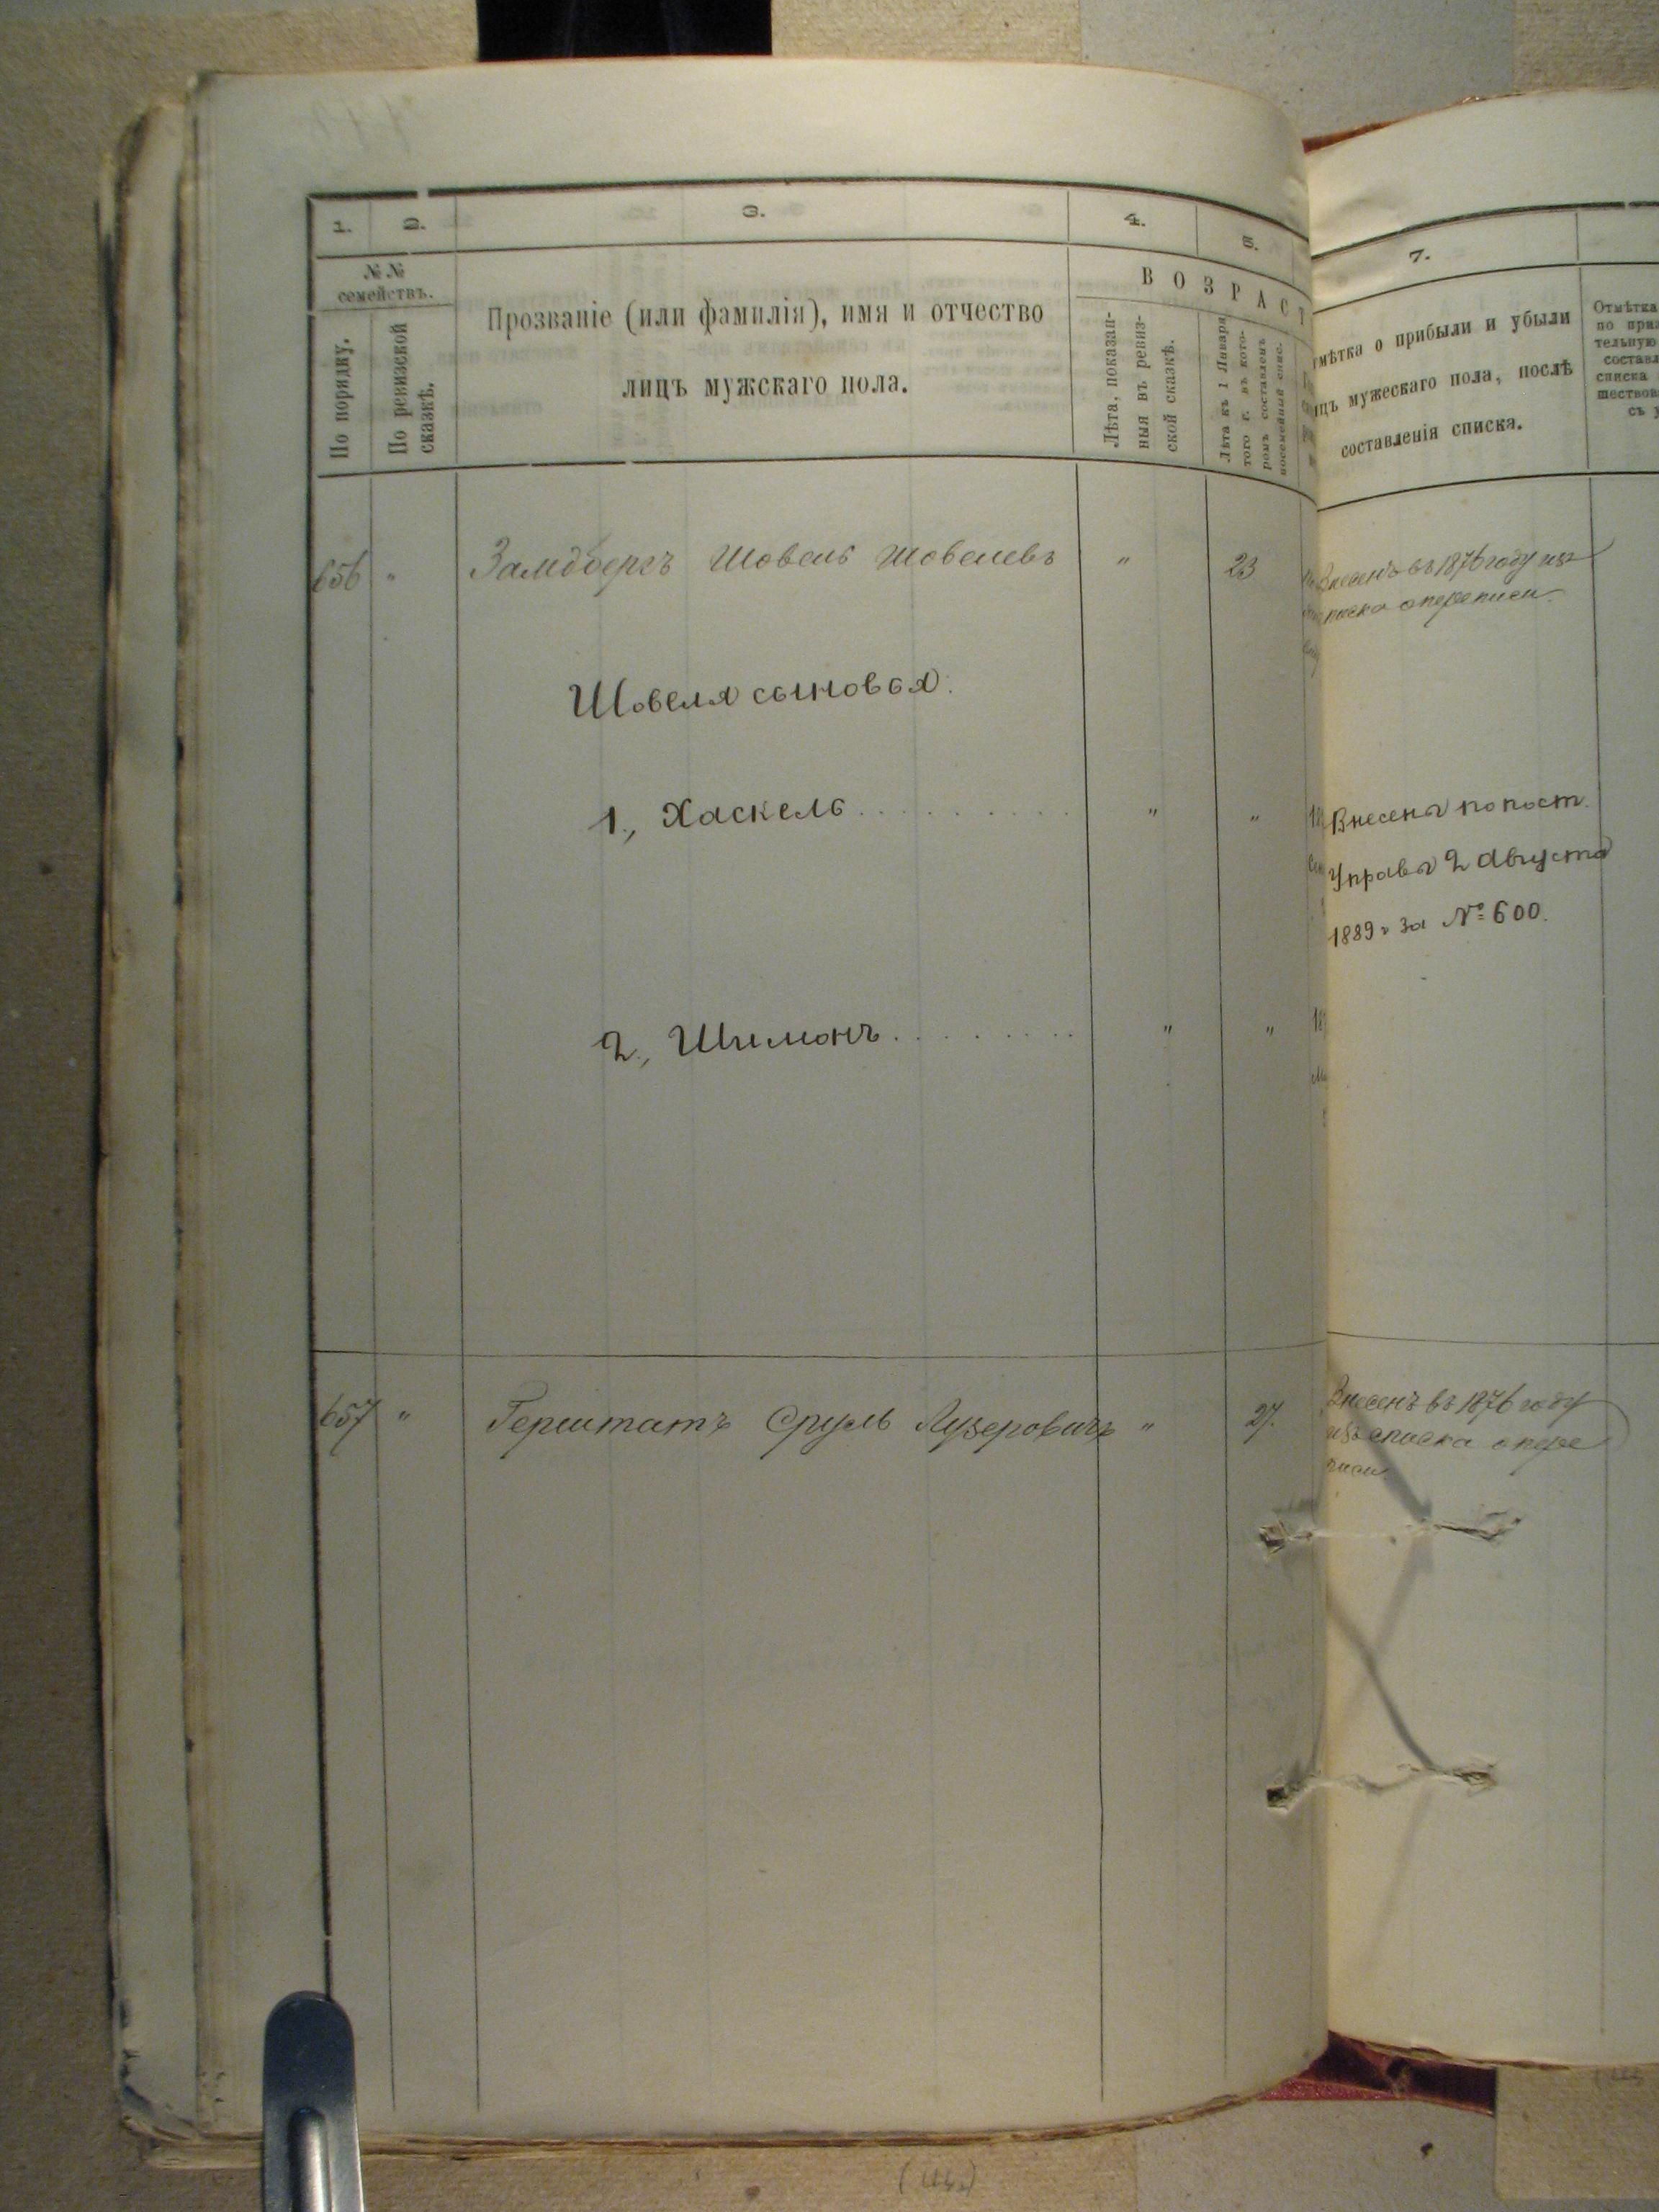 1.
2.
3.
4.
5.
7.
№ №
семействъ.
По порядку.
По ревизской
сказкѣ.
Прозваніе (или фамилія), имя и отчество
лицъ мужскаго пола.
ВОЗРАСТ
Лѣта, показан-
ныя въ ревиз-
ской сказкѣ.
Лѣта къ 1 Января
того г. въ кото-
ромъ составленъ
посемейный спис.
мѣтка о прибыли и убыли
ицъ мужескаго пола, послѣ
составленія списка.
Отмѣтка
по приз
тельную
составл
списка
шествов
съ у
656 " Замдбергъ Шовель Шовелевъ " 23
Внесенъ въ 1876 году изъ
списка о переписи.
Шовеля сыновья:
1, Хаскель . . . . . . . . . " "
Внесены по пост.
Управы 2 Августа
1889 г за № 600.
2, Шимонъ . . . . . . . . " "
657 " Герштатъ Сруль Лузеровичъ " 27.
Внесенъ въ 1876 году
изъ списка о пере
писи.